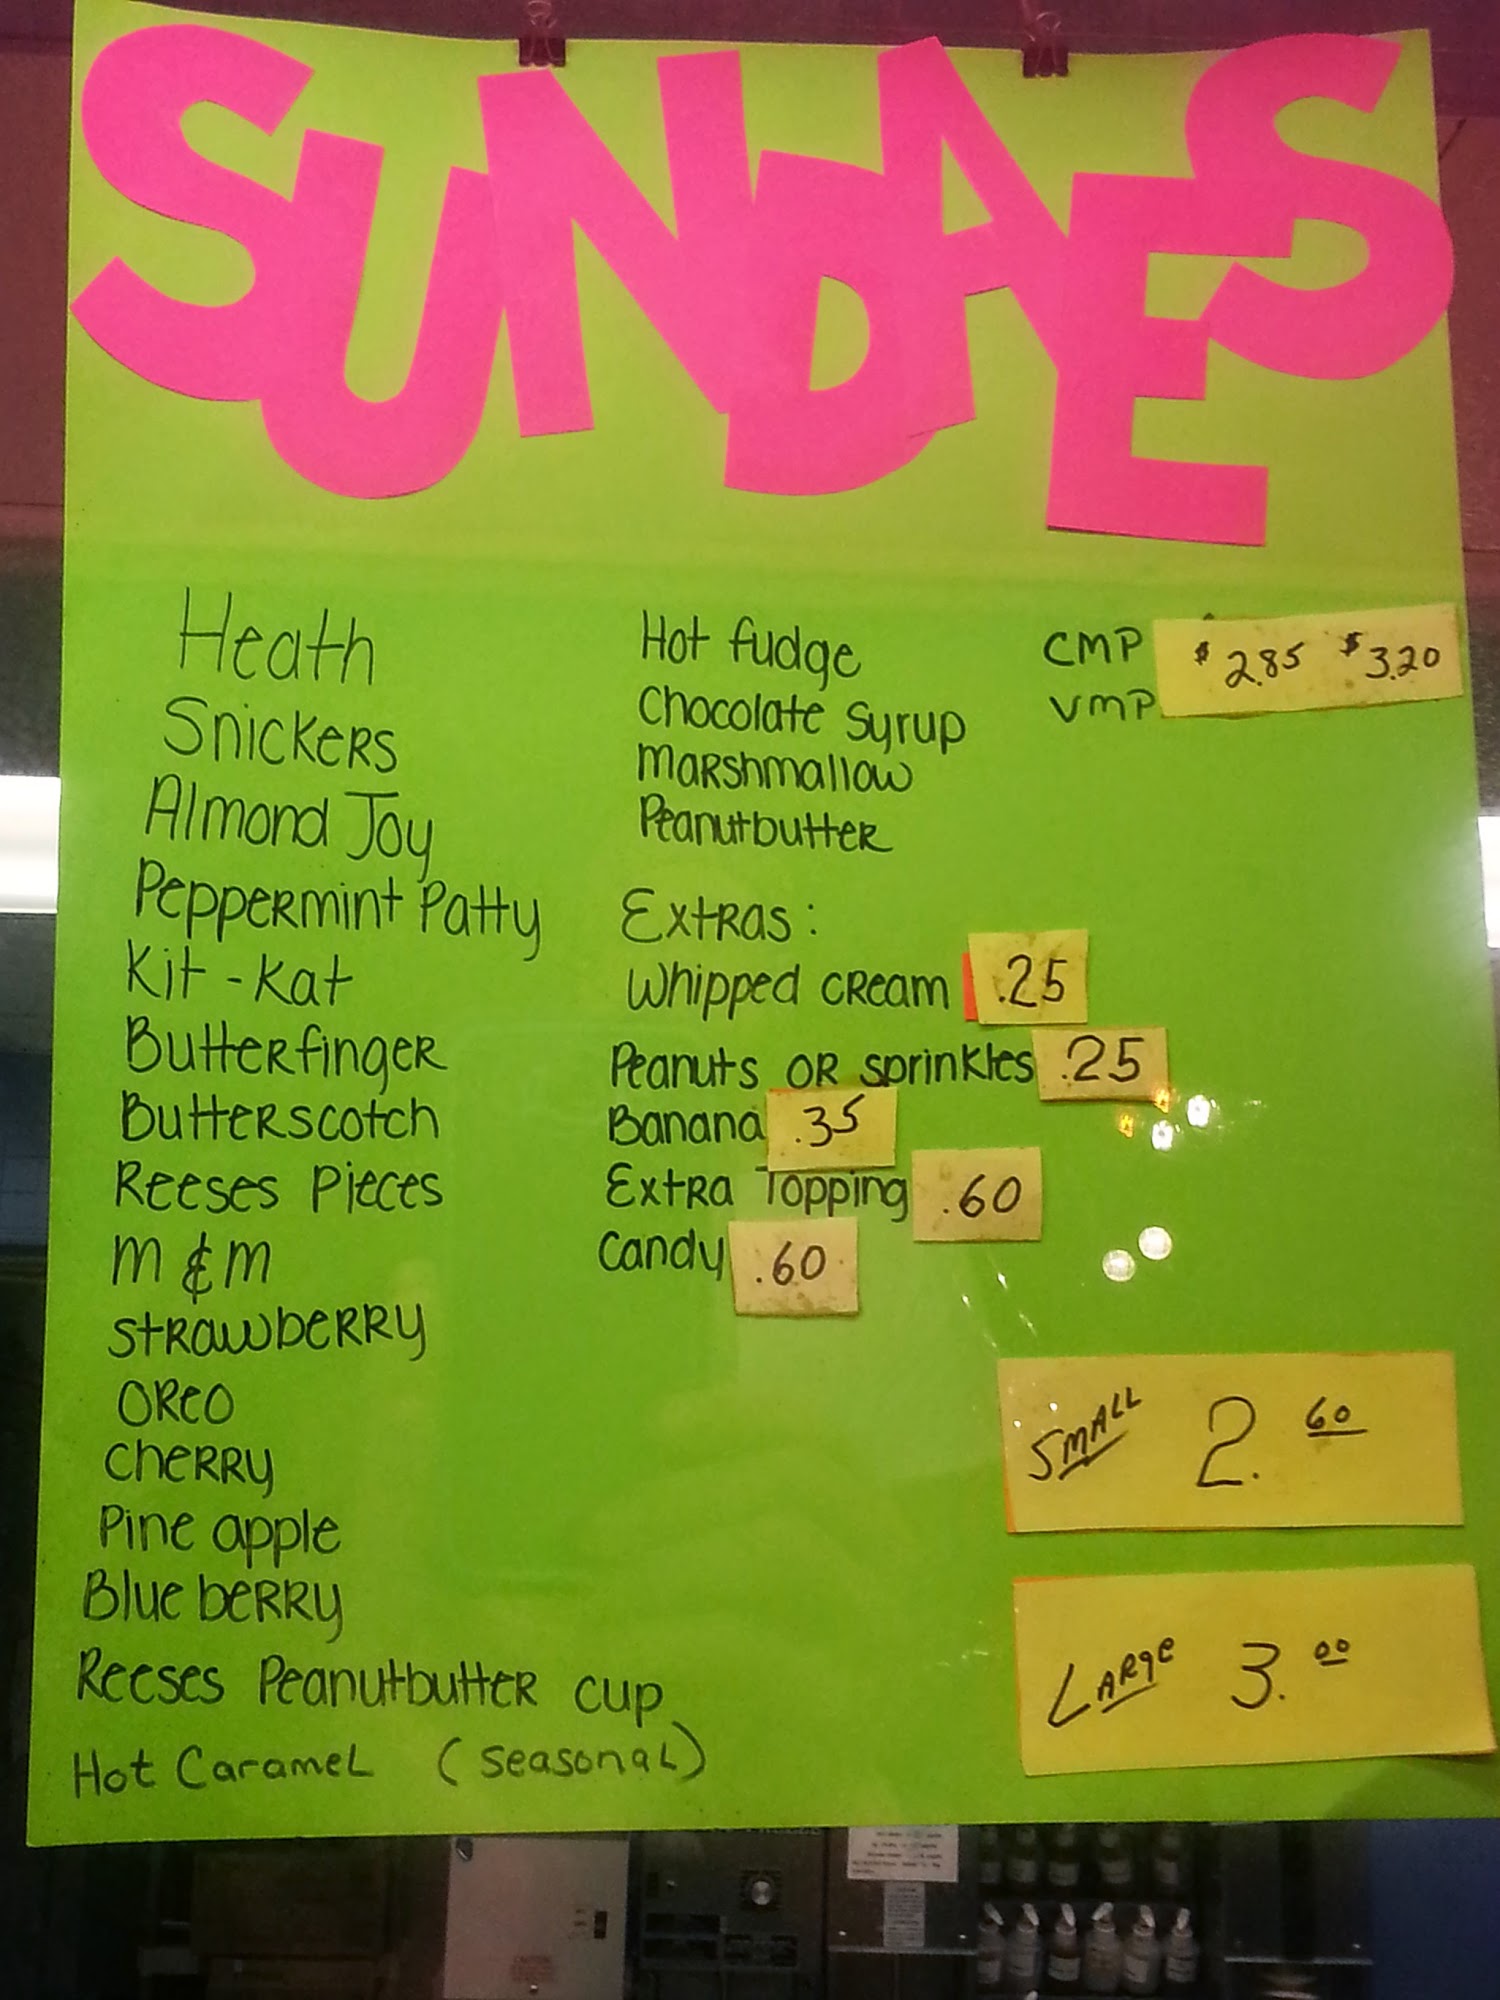 SUNDAES
Heath
Snickers
Almond Joy
Peppermint Patty
Kit-Kat
Butterfinger
Butterscotch
Reeses Pieces
m & m
Strawberry
Oreo
Cherry
Pine apple
Blue berry
Reeses Peanutbutter cup
Hot Caramel (seasonal)
Hot fudge
Chocolate Syrup
Marshmallow
Peanutbutter
Extras:
Whipped cream .25
Peanuts or sprinkles .25
Banana .35
Extra Topping .60
Candy .60
CMP $2.85 $3.20
VMP
SMALL 2.60
LARgE 3.00